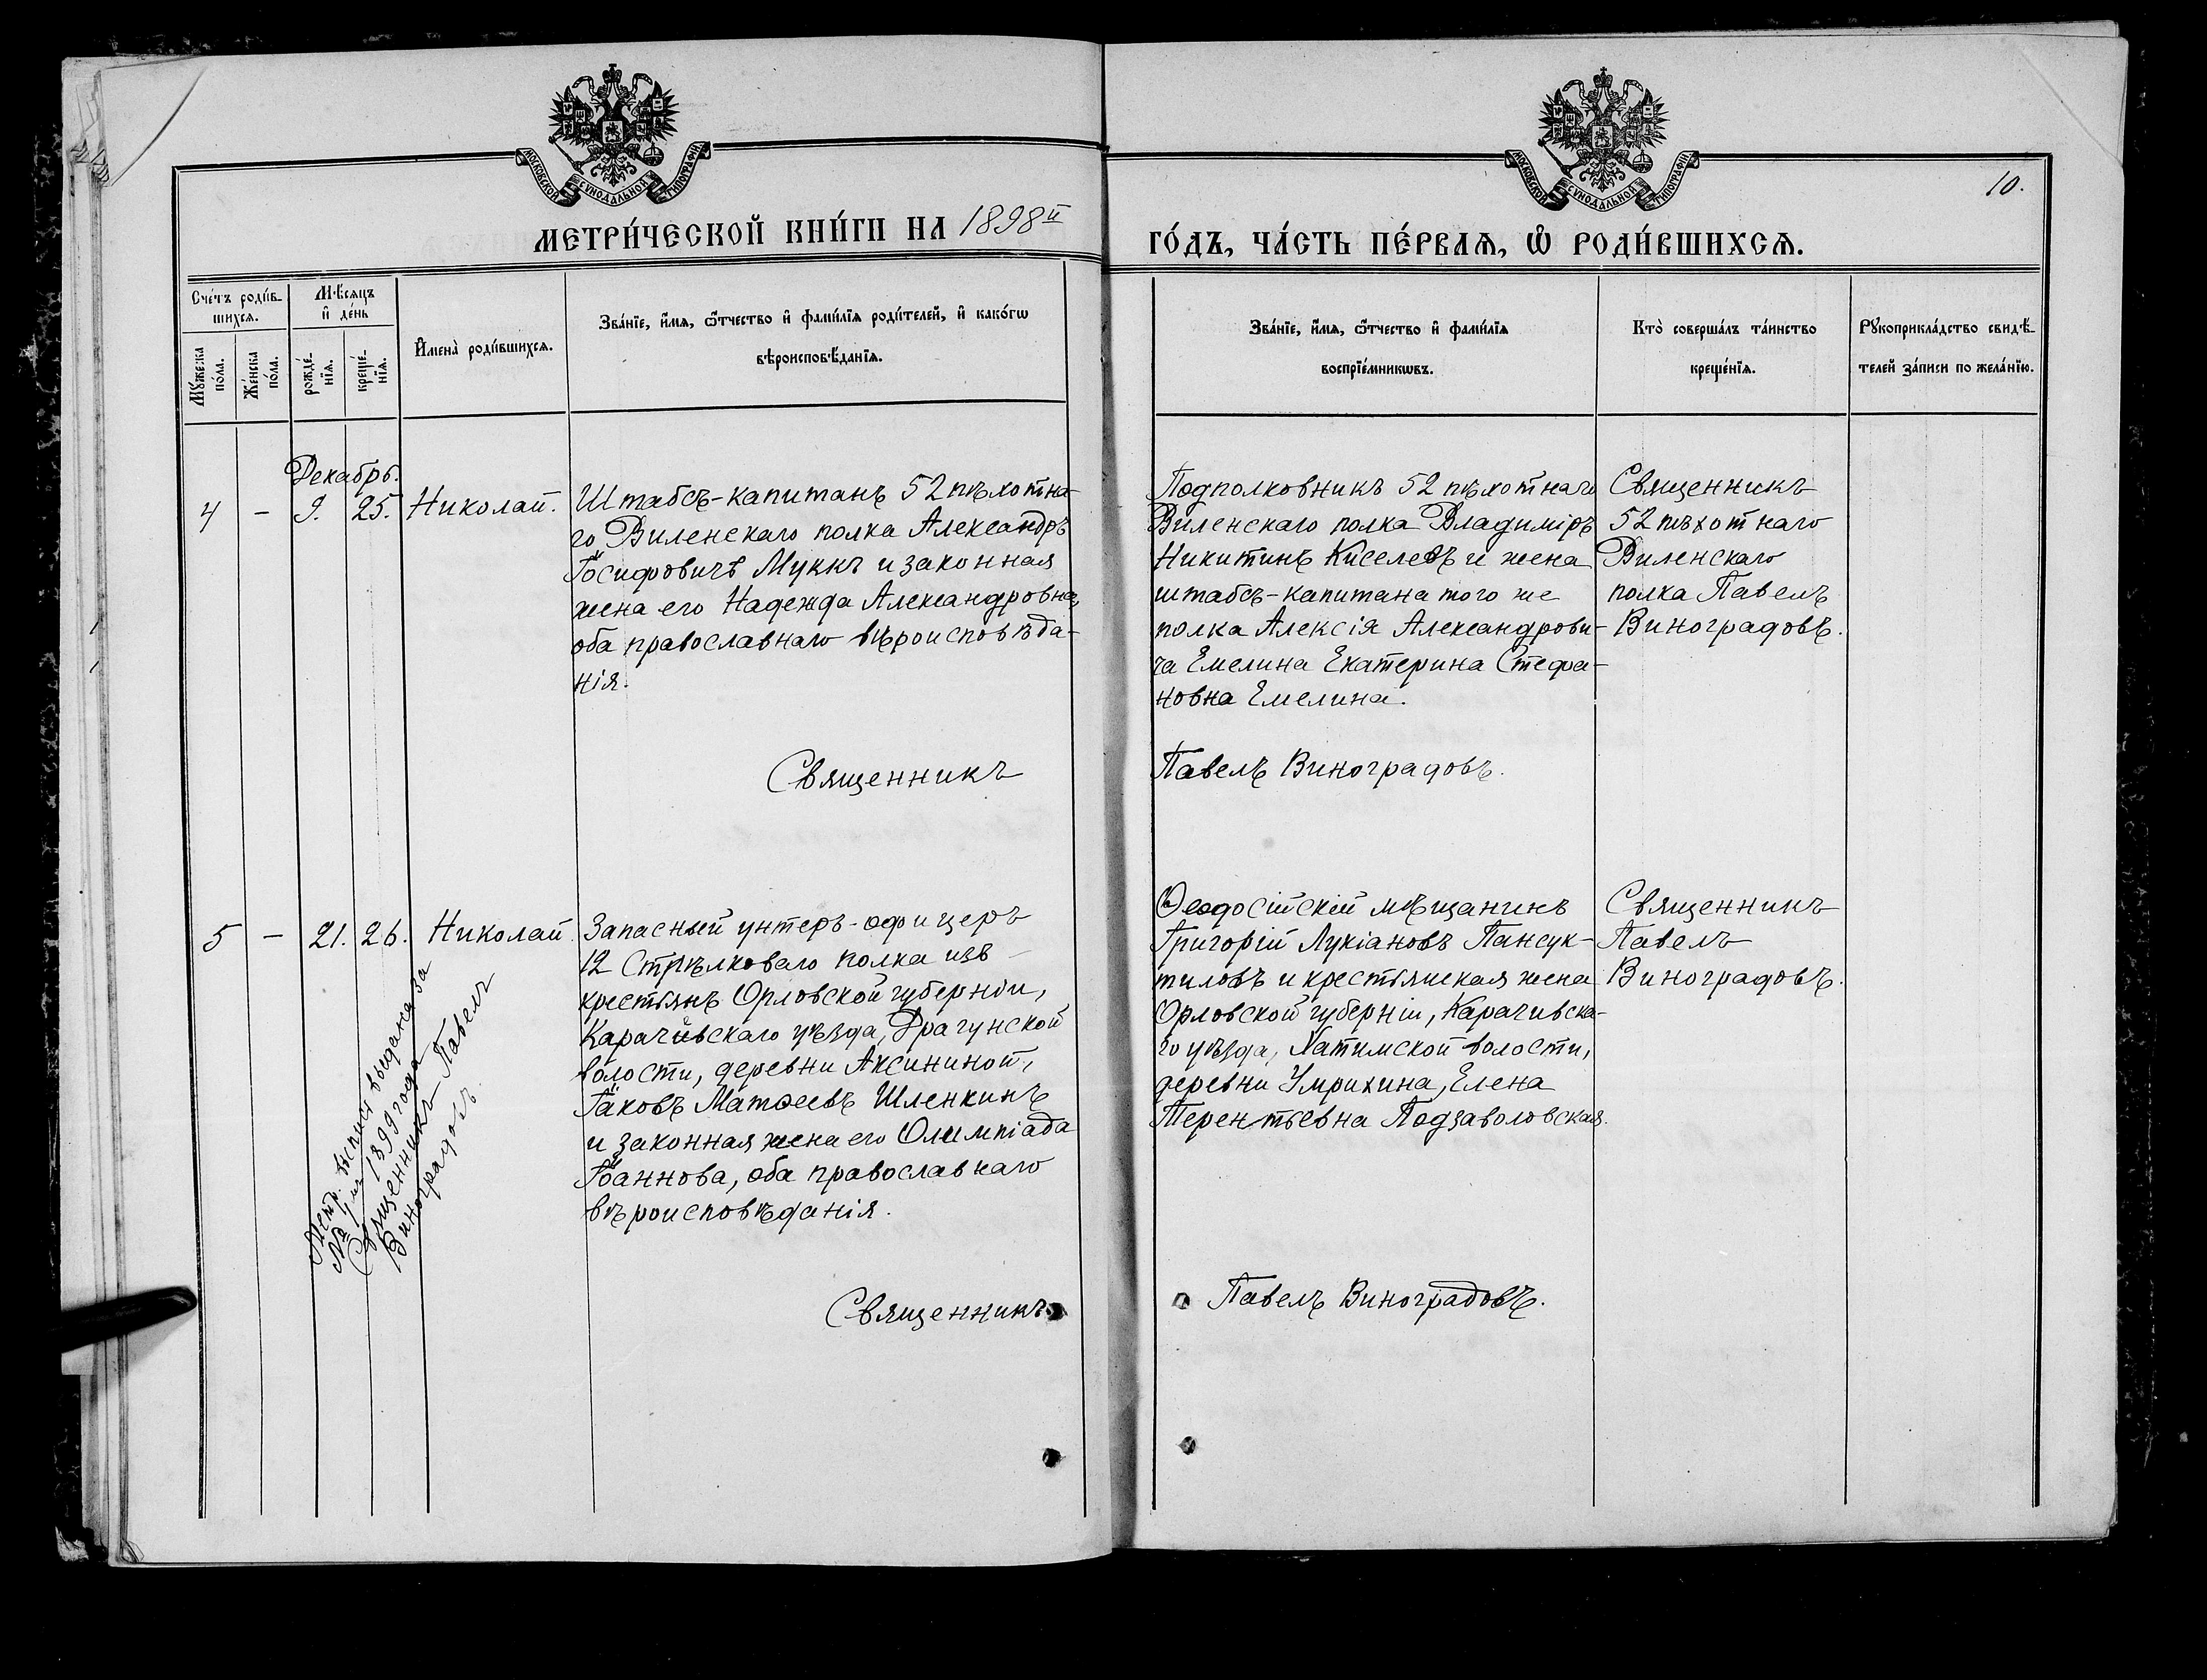 МОСКОВСКОЙ СѴНОДАЛЬНОЙ ТИПОГРАФІИ
МОСКОВСКОЙ СѴНОДАЛЬНОЙ ТИПОГРАФІИ
10.
МЕТРИ́ЧЕСКОЙ КНИ́ГИ НА 1898й
ГО́ДЪ, ЧА́СТЬ ПЕ́РВАѦ, Ѡ҆ РОДИ́ВШИХСѦ.
Сче́тъ роди́в-
шихсѧ.
Му́жеска
по́ла.
Же́нска
по́ла.
Мѣ́сяцъ
и҆ де́нь
рожде́-
нїѧ.
креще́-
нїѧ.
И҆мена̀ роди́вшихсѧ.
Зва́нїе, и҆́мѧ, ѻ҆́тчество и҆ фами́лїѧ роди́телей, и҆ како́гѡ
вѣроисповѣ́данїѧ.
Зва́нїе, и҆́мѧ, ѻ҆́тчество и҆ фами́лїѧ
воспрїе́мникѡвъ.
Кто̀ соверша́лъ та́инство
креще́нїѧ.
Рꙋкоприкла́дство свидѣ́-
телей за́писи по жела́нїю.
Декабрь.
4 - 9. 25. Николай.
Штабсъ-капитанъ 52 пѣхотна-
го Виленскаго полка Александръ
Іосифовичъ Муккъ и законная
жена его Надежда Александровна,
оба православнаго вѣроисповѣда-
нія.
Подполковникъ 52 пѣхотнаго
Виленскаго полка Владиміръ
Никитинъ Киселевъ и жена
штабсъ-капитана того же
полка Алексія Александрови-
ча Емелина Екатерина Стефа-
новна Емелина.
Священникъ
52 пѣхотнаго
Виленскаго
полка Павелъ
Виноградовъ.
Священникъ
Павелъ Виноградовъ.
5 - 21. 26. Николай.
Запасный унтеръ-офицеръ
12 Стрѣлковаго полка изъ
крестьянъ Орловской губерніи,
Карачевскаго уѣзда, Драгунской
волости, деревни Аксининой,
Іаковъ Матѳеевъ Шленкинъ
и законная жена его Олимпіада
Іоаннова, оба православнаго
вѣроисповѣданія.
Ѳеодосійскій мѣщанинъ
Григорій Лукіановъ Пансук-
тиловъ и крестьянская жена
Орловской губерніи, Карачивска-
го уѣзда, Хатимской волости,
деревни Умрихина, Елена
Терентьевна Подзаволовская.
Священникъ
Павелъ
Виноградовъ.
Метр. выпись выдана за
№ 1899 года
Священникъ Павелъ
Виноградовъ.
Священникъ
Павелъ Виноградовъ.